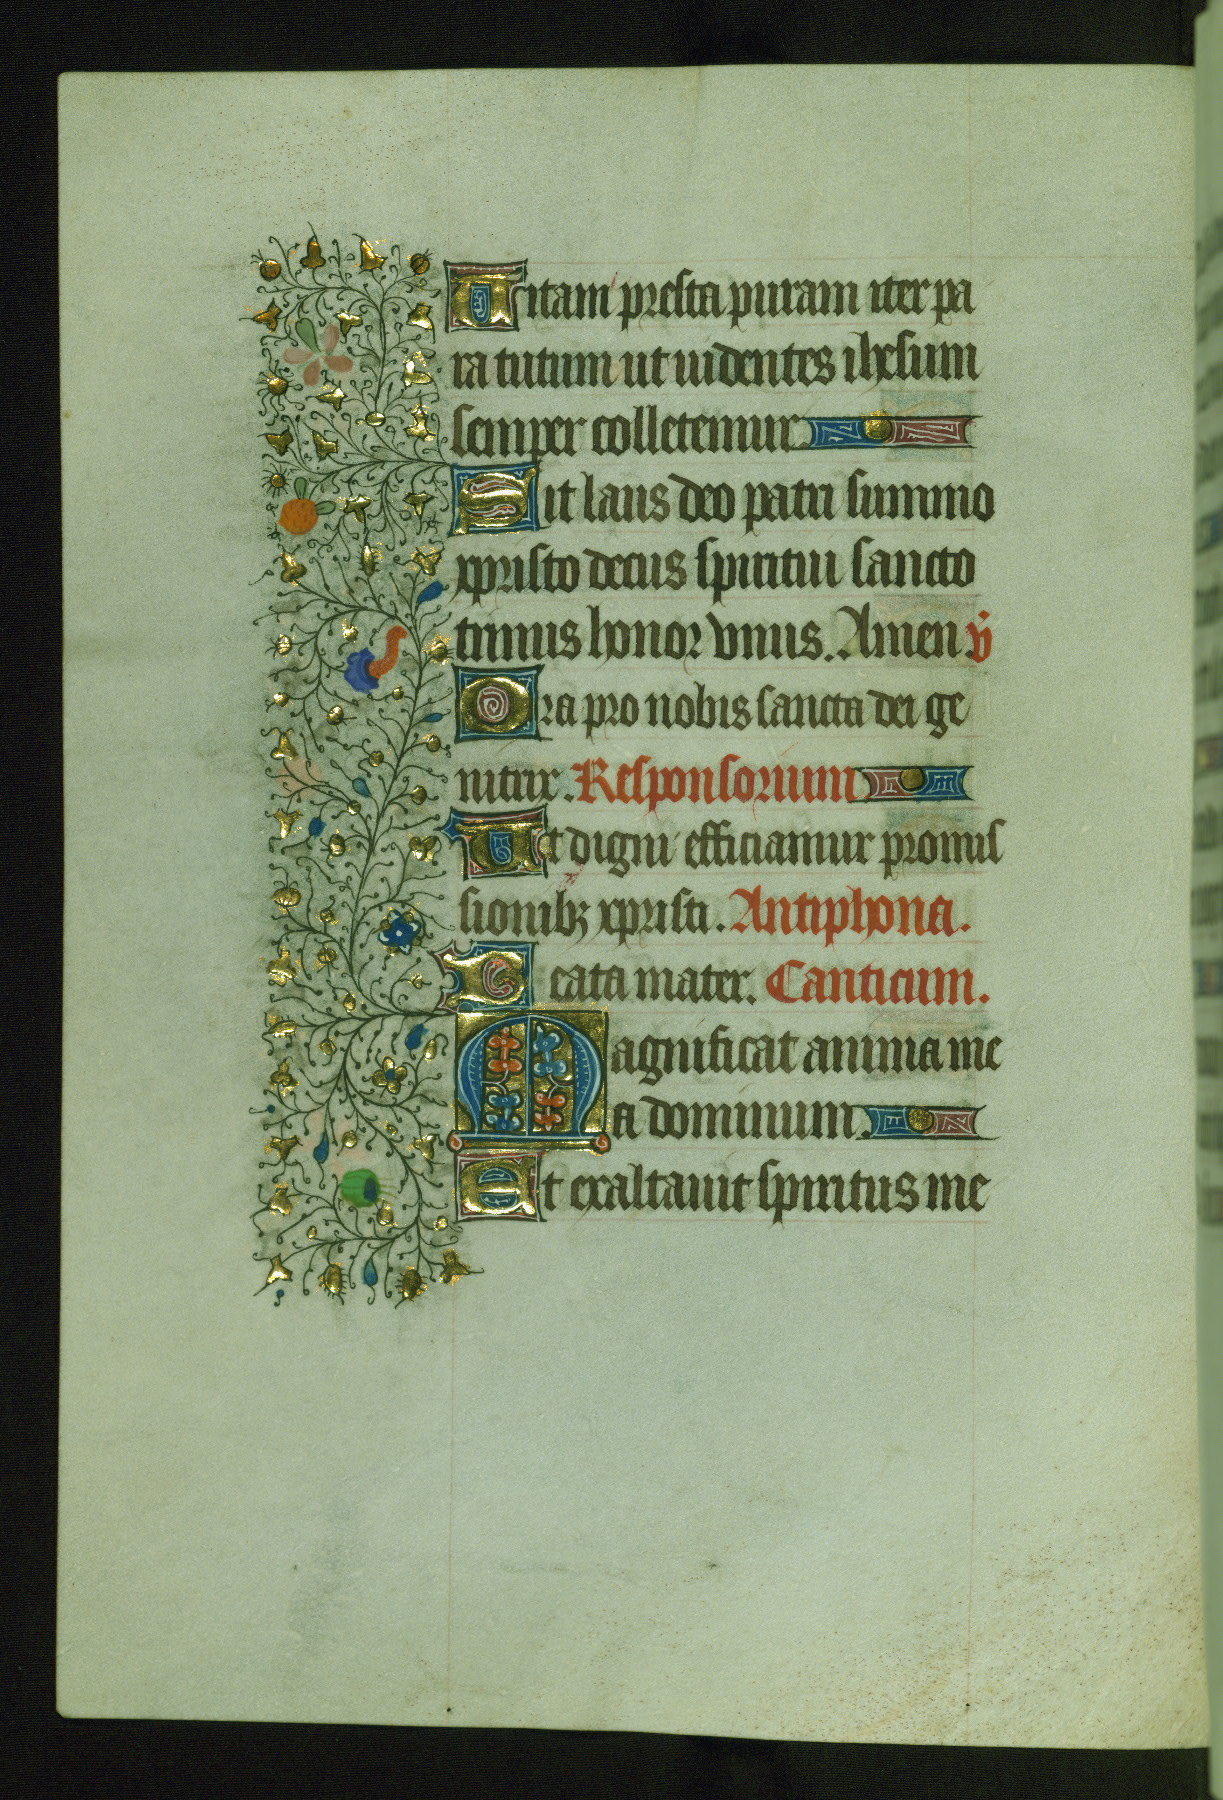 Uitam presta puram iter pa
ra tutum ut uidentes ihesum
semper colletemur
Sit laus deo patri summo
xpristo decus spiritui sancto
trinus honor vnus. Amen v̄
Ora pro nobis sancta dei ge
nitrix. Responsorium
Ut digni efficiamur promis
sionibꝫ xpristi. Antiphona.
Beata mater. Canticum.
Magnificat anima me
a dominum.
Et exaltauit spiritus me